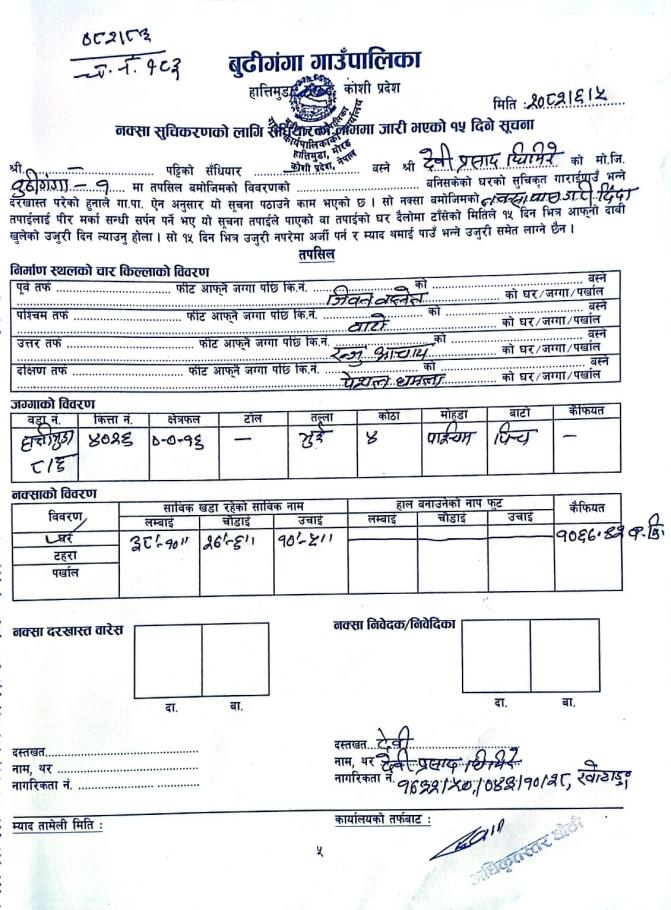 ०८२।८३
च. नं. १८३
बुढीगंगा गाउँपालिका
हात्तिमुडा, कोशी प्रदेश
मिति :२०८२।६।५
नक्सा सुचिकरणको लागि जारी भएको १५ दिने सूचना
श्री. – पट्टिको सँधियार बस्ने श्री देवी प्रसाद घिमिरे को मो.जि.
बुढीगंगा - १ मा तपसिल बमोजिमको विवरणको बनिसकेको घरको सुचिकृत गराईपाउँ भन्ने
दरखास्त परेको हुनाले गा.पा. ऐन अनुसार यो सूचना पठाउने काम भएको छ । सो नक्सा बमोजिमको
तपाईलाई पीर मर्का सन्धी सर्पन पर्ने भए यो सूचना तपाईले पाएको वा तपाईको घर दैलोमा टाँसेको मितिले १५ दिन भित्र आफ्नो दावी
खुलेको उजुरी दिन ल्याउनु होला । सो १५ दिन भित्र उजुरी नपरेमा अर्जी पर्न र म्याद थमाई पाउँ भन्ने उजुरी समेत लाग्ने छैन ।
तपसिल
निर्माण स्थलको चार किल्लाको विवरण
पूर्व तर्फ फीट आफ्नै जग्गा पछि कि.नं. को बस्ने
जिवन बस्नेत को घर/जग्गा/पर्खाल
पश्चिम तर्फ फीट आफ्नै जग्गा पछि कि.नं. को बस्ने
बाटो को घर/जग्गा/पर्खाल
उत्तर तर्फ फीट आफ्नै जग्गा पछि कि.नं. को बस्ने
रन्जु आचार्य को घर/जग्गा/पर्खाल
दक्षिण तर्फ फीट आफ्नै जग्गा पछि कि.नं. को बस्ने
पेशल धमला को घर/जग्गा/पर्खाल
जग्गाको विवरण
वडा नं. कित्ता नं. क्षेत्रफल टोल तल्ला कोठा मोहडा बाटो कैफियत
हात्तीमुडा ४०२६ ०-०-१६ – भुई ४ पश्चिम पिच –
८।६
नक्साको विवरण
विवरण साविक खडा रहेको साविक नाम हाल बनाउनेको नाप फूट कैफियत
लम्बाई चौडाई उचाई लम्बाई चौडाई उचाई
घर ३८'-१०" २६'-६" १०'-५" १०६६.४२ व.फि.
टहरा
पर्खाल
नक्सा दरखास्त वारेस नक्सा निवेदक/निवेदिका
दा. बा. दा. बा.
दस्तखत दस्तखत देवी
नाम, थर नाम, थर देवी प्रसाद घिमिरे
नागरिकता नं. नागरिकता नं.
म्याद तामेली मिति : कार्यालयको तर्फबाट :
अधिकृतस्तर छैठौं
५